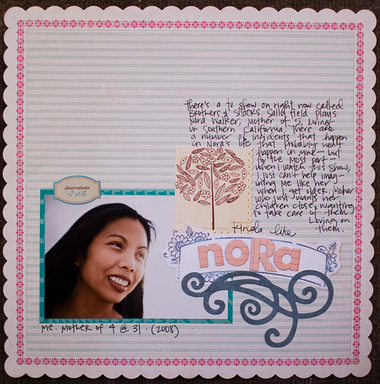 there's a tv show on right now called
Brothers & Sisters. Sally Field plays
Nora Walker, mother of 5, living
in Southern California. There are
a number of incidents that happen
in Nora's life that probably won't
happen in mine - but
for the most part -
when I watch this show,
I just can't help imag-
ining me like her
when I get older. Nora
who just wants her
children close, wanting
to take care of them,
living on
Kinda like them.
observations
nora
me. mother of 4 @ 31. (2008)